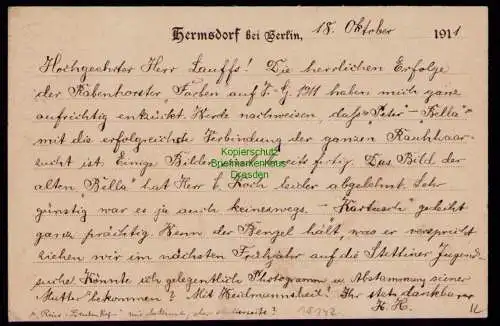 Hermsdorf bei Berlin, 18. Oktober 1911
Hochgeehrter Herr Lauffs! Die herrlichen Erfolge
der Rabenhorster Farben auf haben mich ganz
aufrichtig entzückt. Werde nachweisen, dass "Peter" - "Bella"
mit die erfolgreichste Verbindung der ganzen Rauhhaar-
zucht ist. Einige Bilder sind bereits fertig. Das Bild der
alten "Bella" hat Herr Koch leider abgelehnt. Sehr
günstig war es ja auch keineswegs - "Kartusch" gedeiht
ganz prächtig. Wenn der Bengel hält, was er verspricht
ziehen wir im nächsten Frühjahr auf die Stettiner Jugend-
suche. Könnte ich gelegentlich Photogramm u. Abstammung seiner
Mutter bekommen? Mit Weidmannsheil! Ihr stets dankbarer
Kopierschutz
Briefmarkenhaus
Dresden
18742